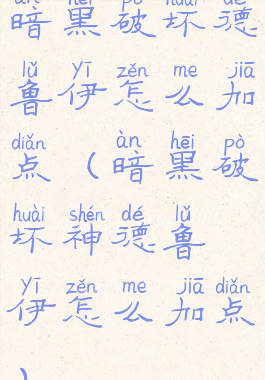 àn hēi pò huài dé
暗黑破坏德
lǔ yī zěn me jiā
鲁伊怎么加
diǎn àn hēi pò
点（暗黑破
huài shén dé lǔ
坏神德鲁
yī zěn me jiā diǎn
伊怎么加点
）